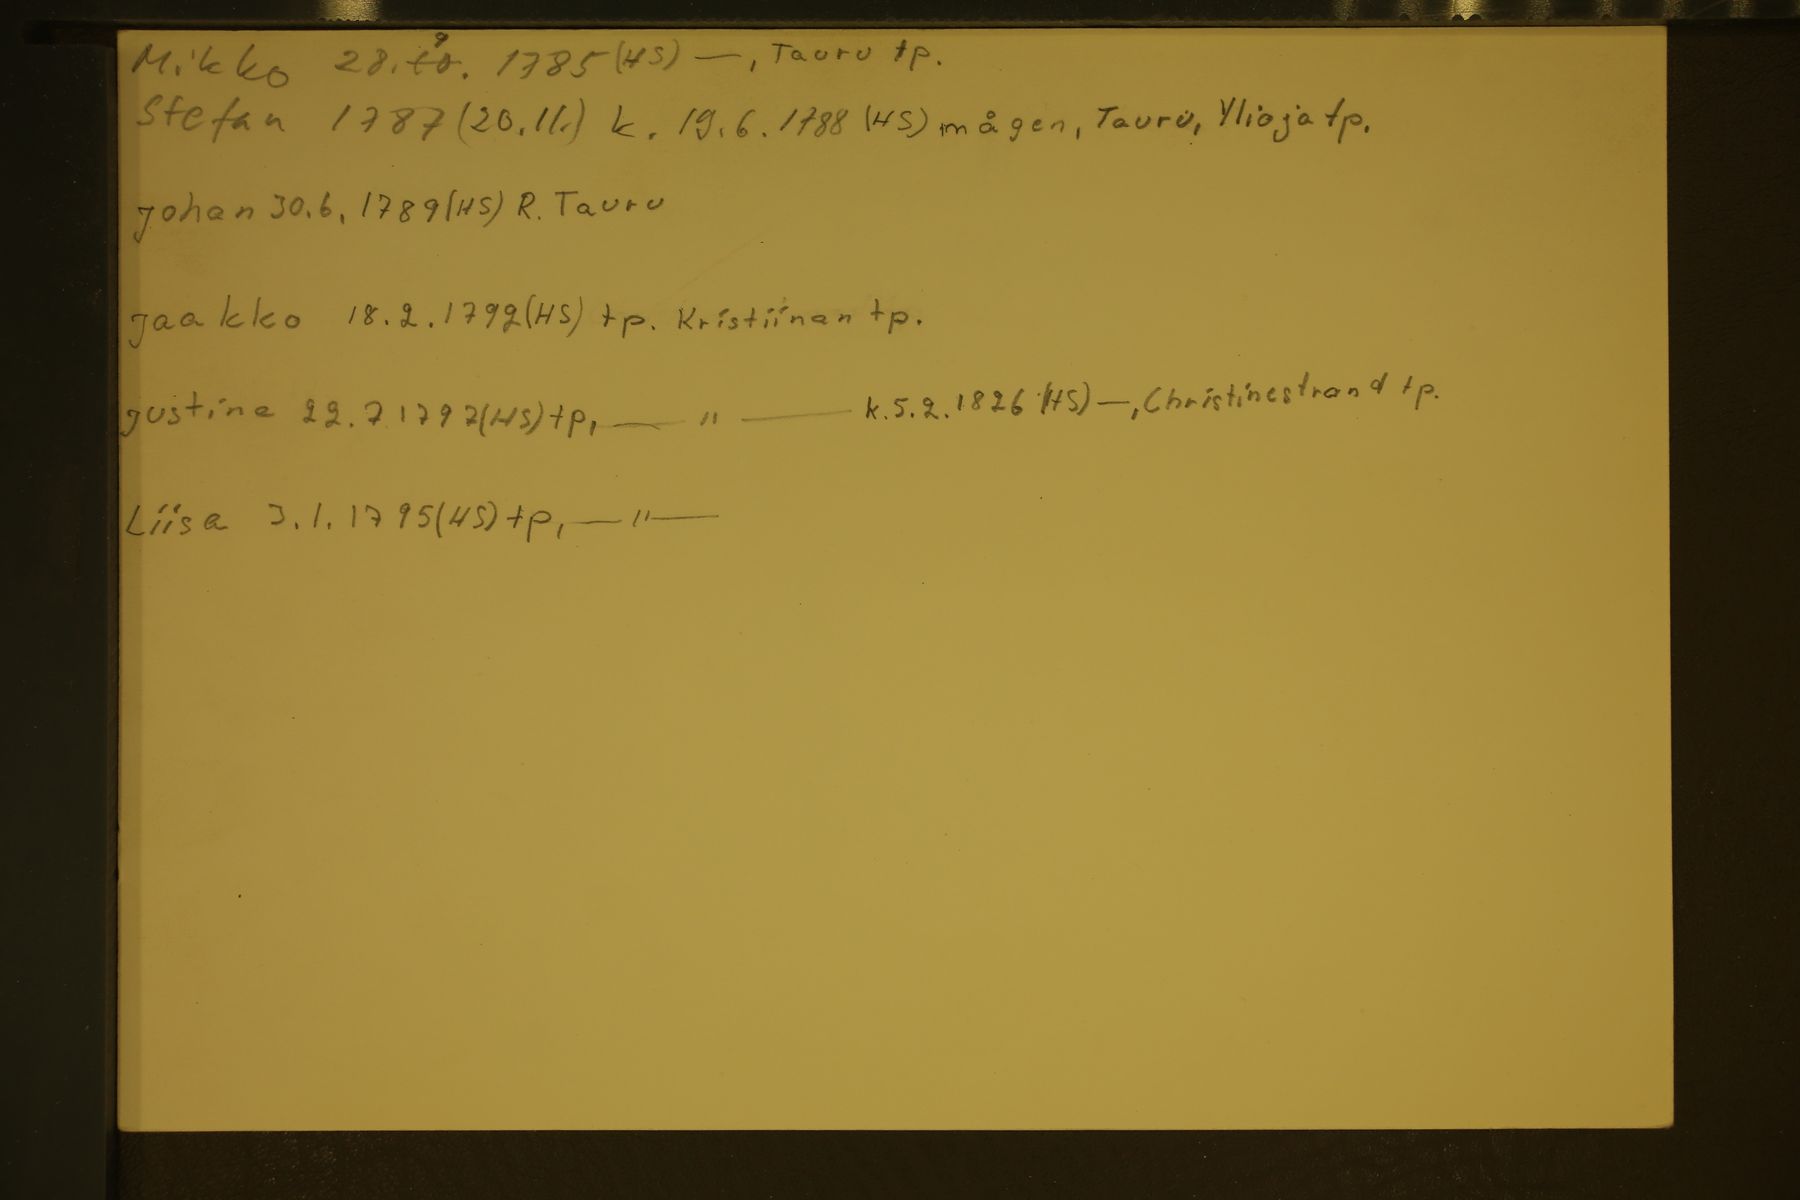 Mikko 28.9. 1785 (HS) —, Tauru tp.
Stefan 1787 (20.11.) k. 19.6.1788 (HS) mågen, Tauru, Ylioja tp.
Johan 30.6. 1789 (HS) R. Tauru
Jaakko 18.2.1792 (HS) tp. Kristiinan tp.
Justina 22.7 1797 (HS) tp, — " — k.5.2.1826 (HS) —, Christinestrand tp.
Liisa 3.1.1795 (HS) tp, — " —